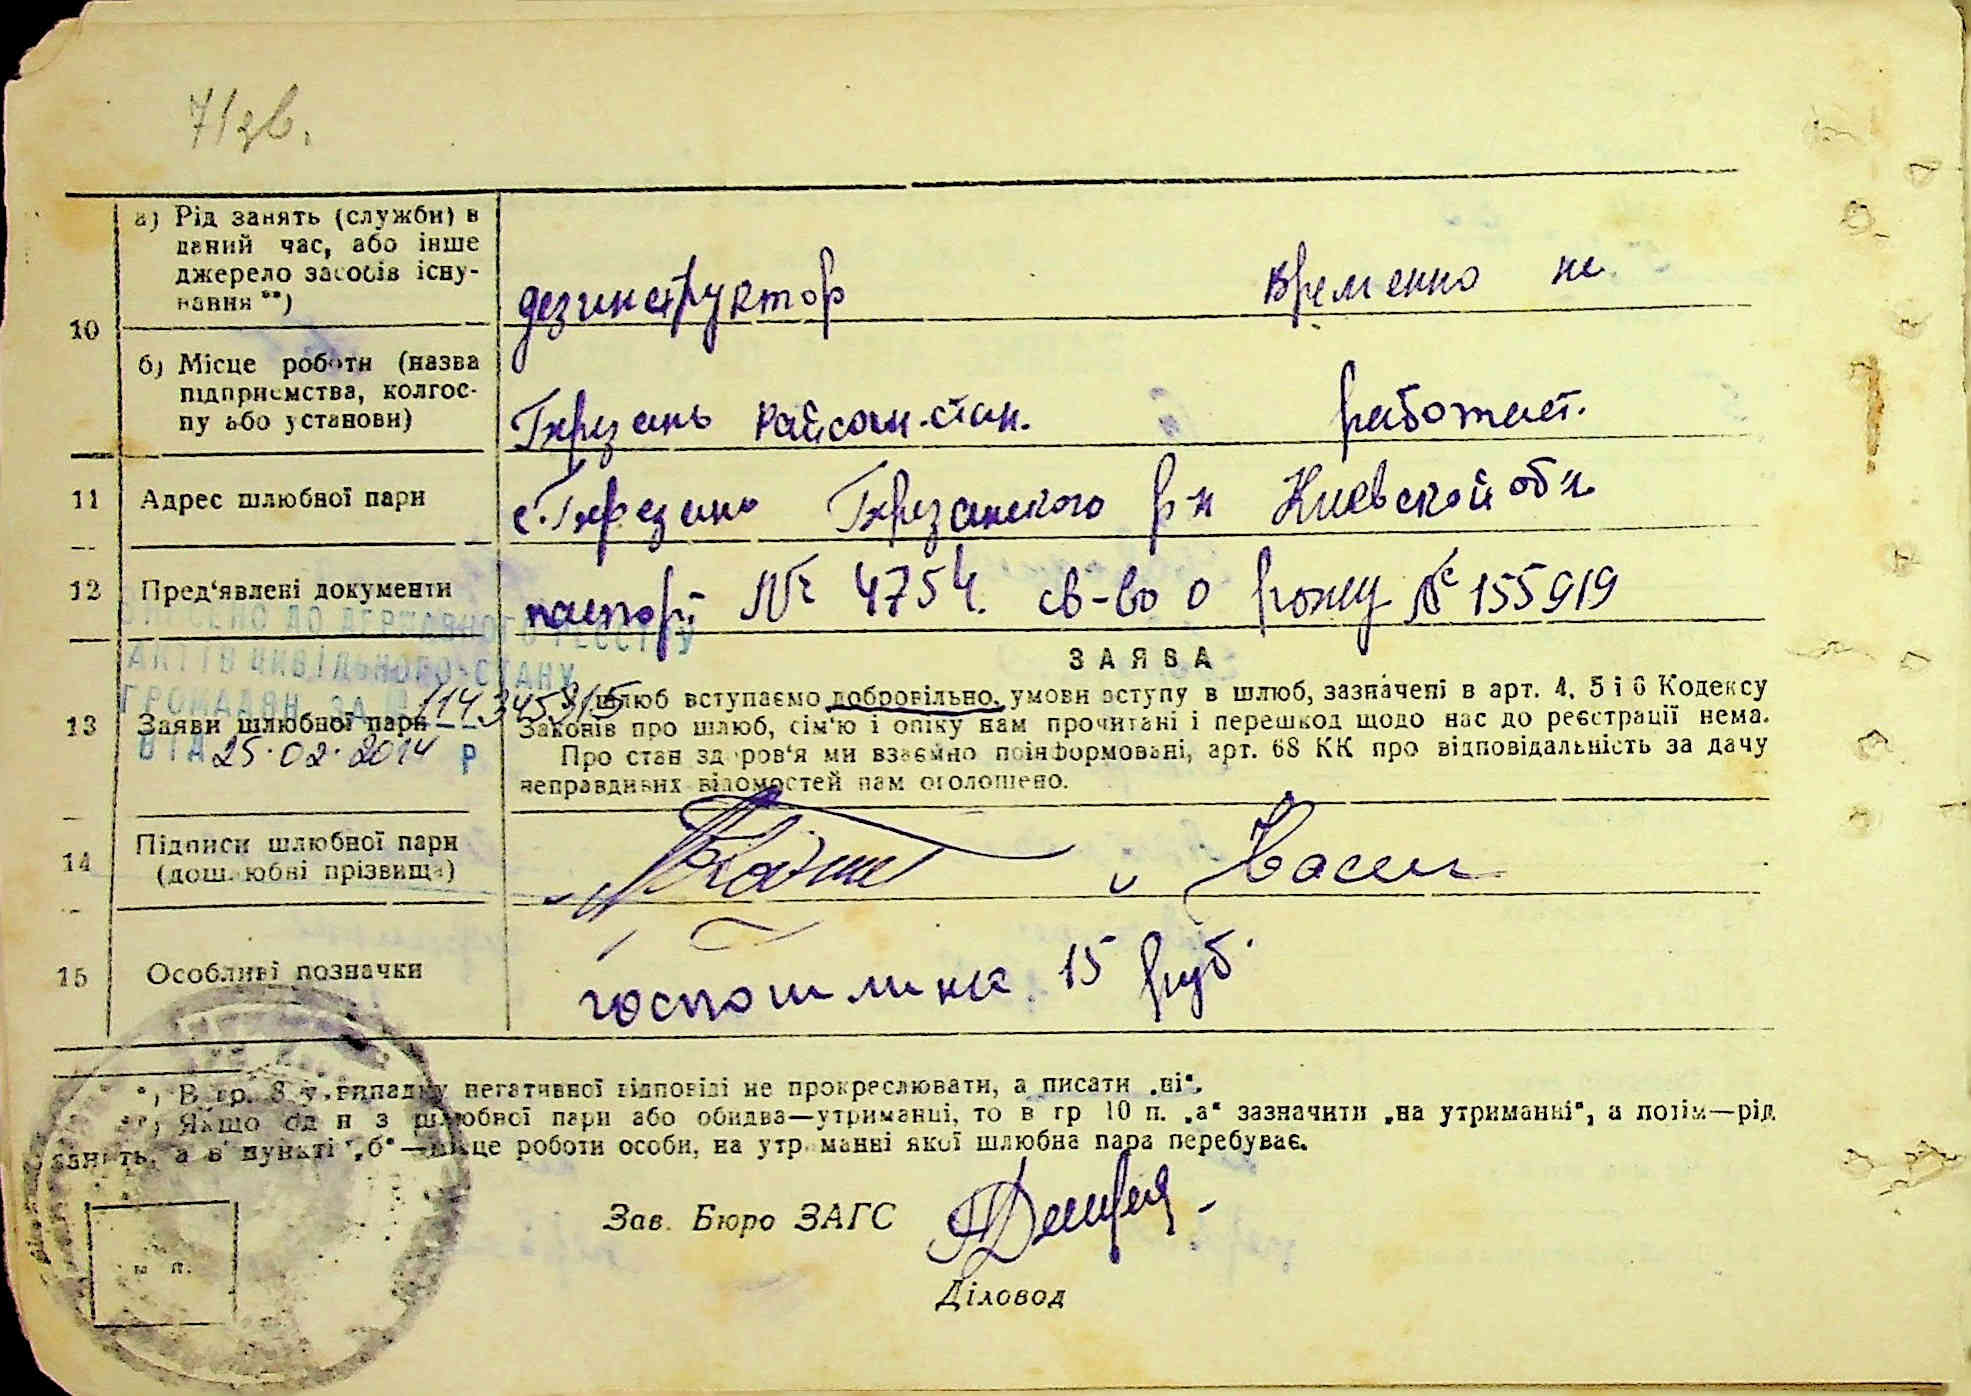 71зв.
10
а) Рід занять (служби) в
даний час, або інше
джерело засобів існу-
вання **)
дезинструктор временно не
б) Місце роботи (назва
підприємства, колгос-
пу або установи)
Березань райсан.стан. работает.
11 Адрес шлюбної пари
с. Березань Березанского р-н Киевской обл
12 Пред'явлені документи
паспорт № 4754. св-во о рожд № 155919
ВНЕСЕНО ДО ДЕРЖАВНОГО РЕЄСТРУ
АКТІВ ЦИВІЛЬНОГО СТАНУ
ГРОМАДЯН ЗА №
ВІД 25.02.2014 р
13 Заяви шлюбної пари
ЗАЯВА
У шлюб вступаємо добровільно, умови вступу в шлюб, зазначені в арт. 4, 5 і 6 Кодексу
Законів про шлюб, сім'ю і опіку нам прочитані і перешкод щодо нас до реєстрації нема.
Про стан здоров'я ми взаємно поінформовані, арт. 68 КК про відповідальність за дачу
неправдивих відомостей нам оголошено.
14 Підписи шлюбної пари
(дошлюбні прізвища)
15 Особливі позначки
госпошлина 15 руб.
*) В гр. 8 у випадку негативної відповіді не прокреслювати, а писати „ні“.
**) Якщо один з шлюбної пари або обидва—утриманці, то в гр 10 п. „а“ зазначити „на утриманні“, а потім—рід
занять, а в пункті „б“—місце роботи особи, на утриманні якої шлюбна пара перебуває.
Зав. Бюро ЗАГС
Діловод
м п.